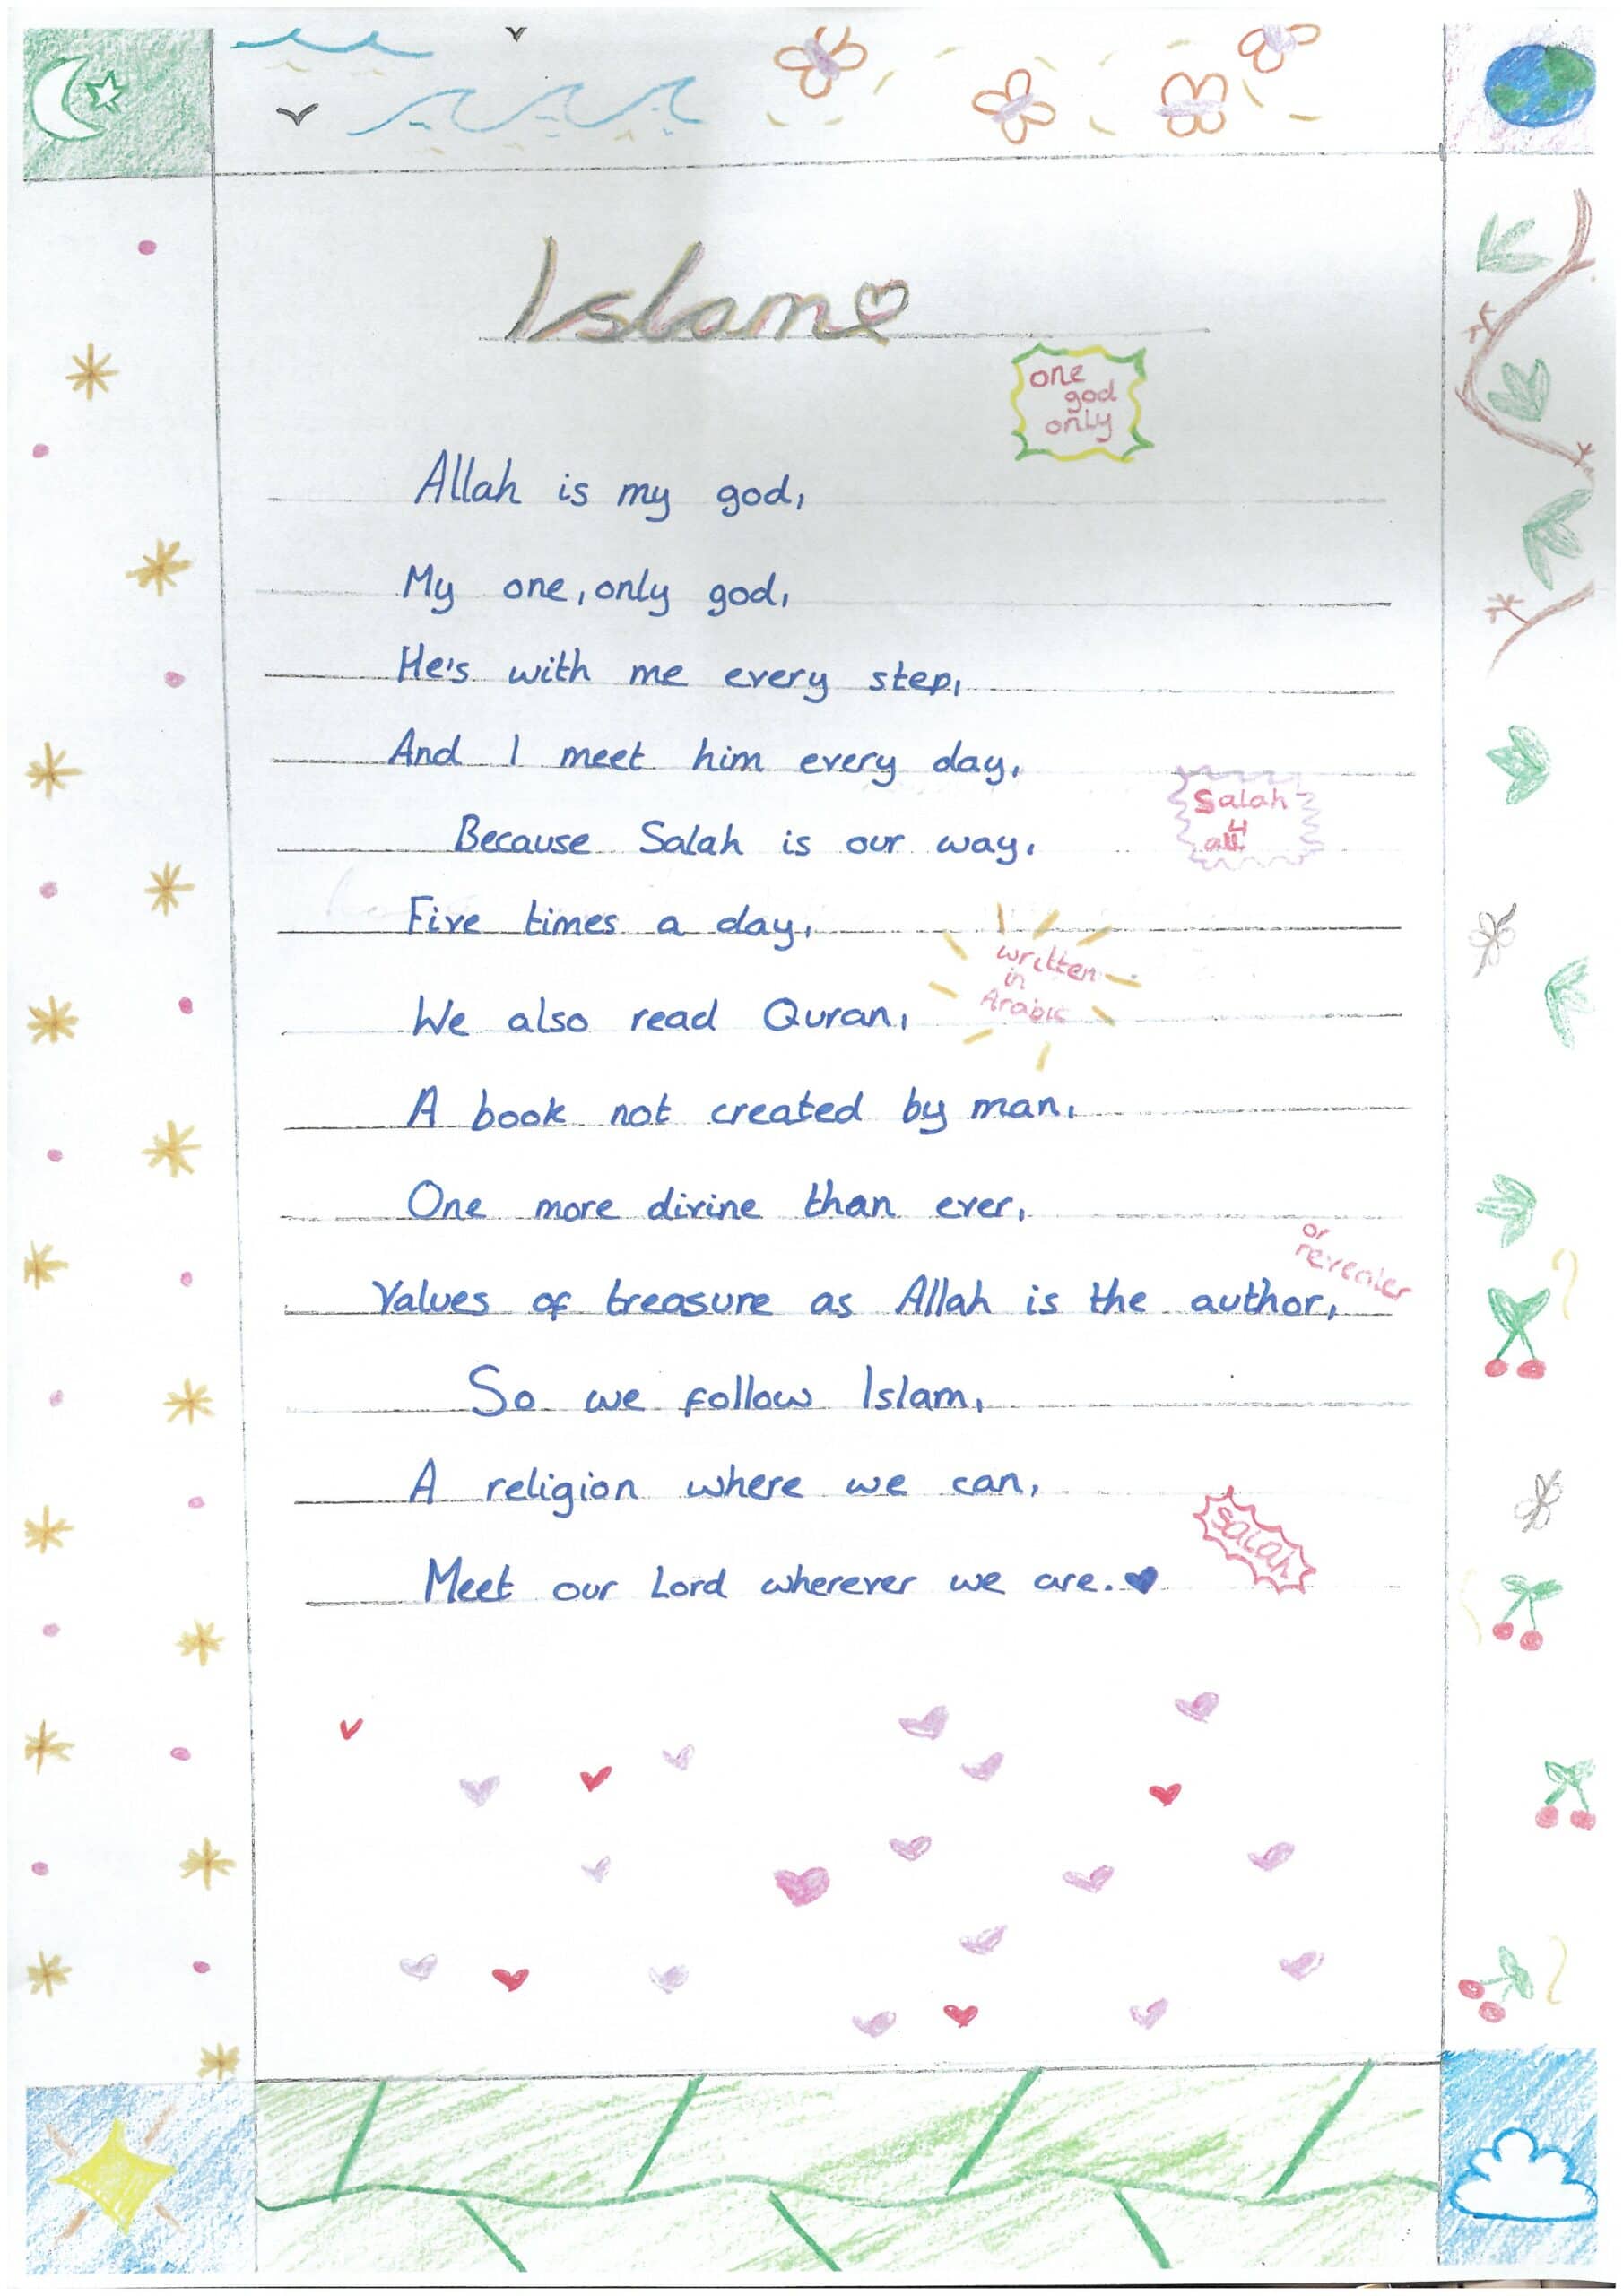 Islam
one
god
only
Allah is my god,
My one, only god,
He's with me every step,
And I meet him every day,
Salah
4
all
Because Salah is our way,
Five times a day,
written
in
Arabic
We also read Quran,
A book not created by man,
One more divine than ever,
or
revealer
Values of treasure as Allah is the author,
So we follow Islam,
A religion where we can,
Salah
Meet our Lord wherever we are.